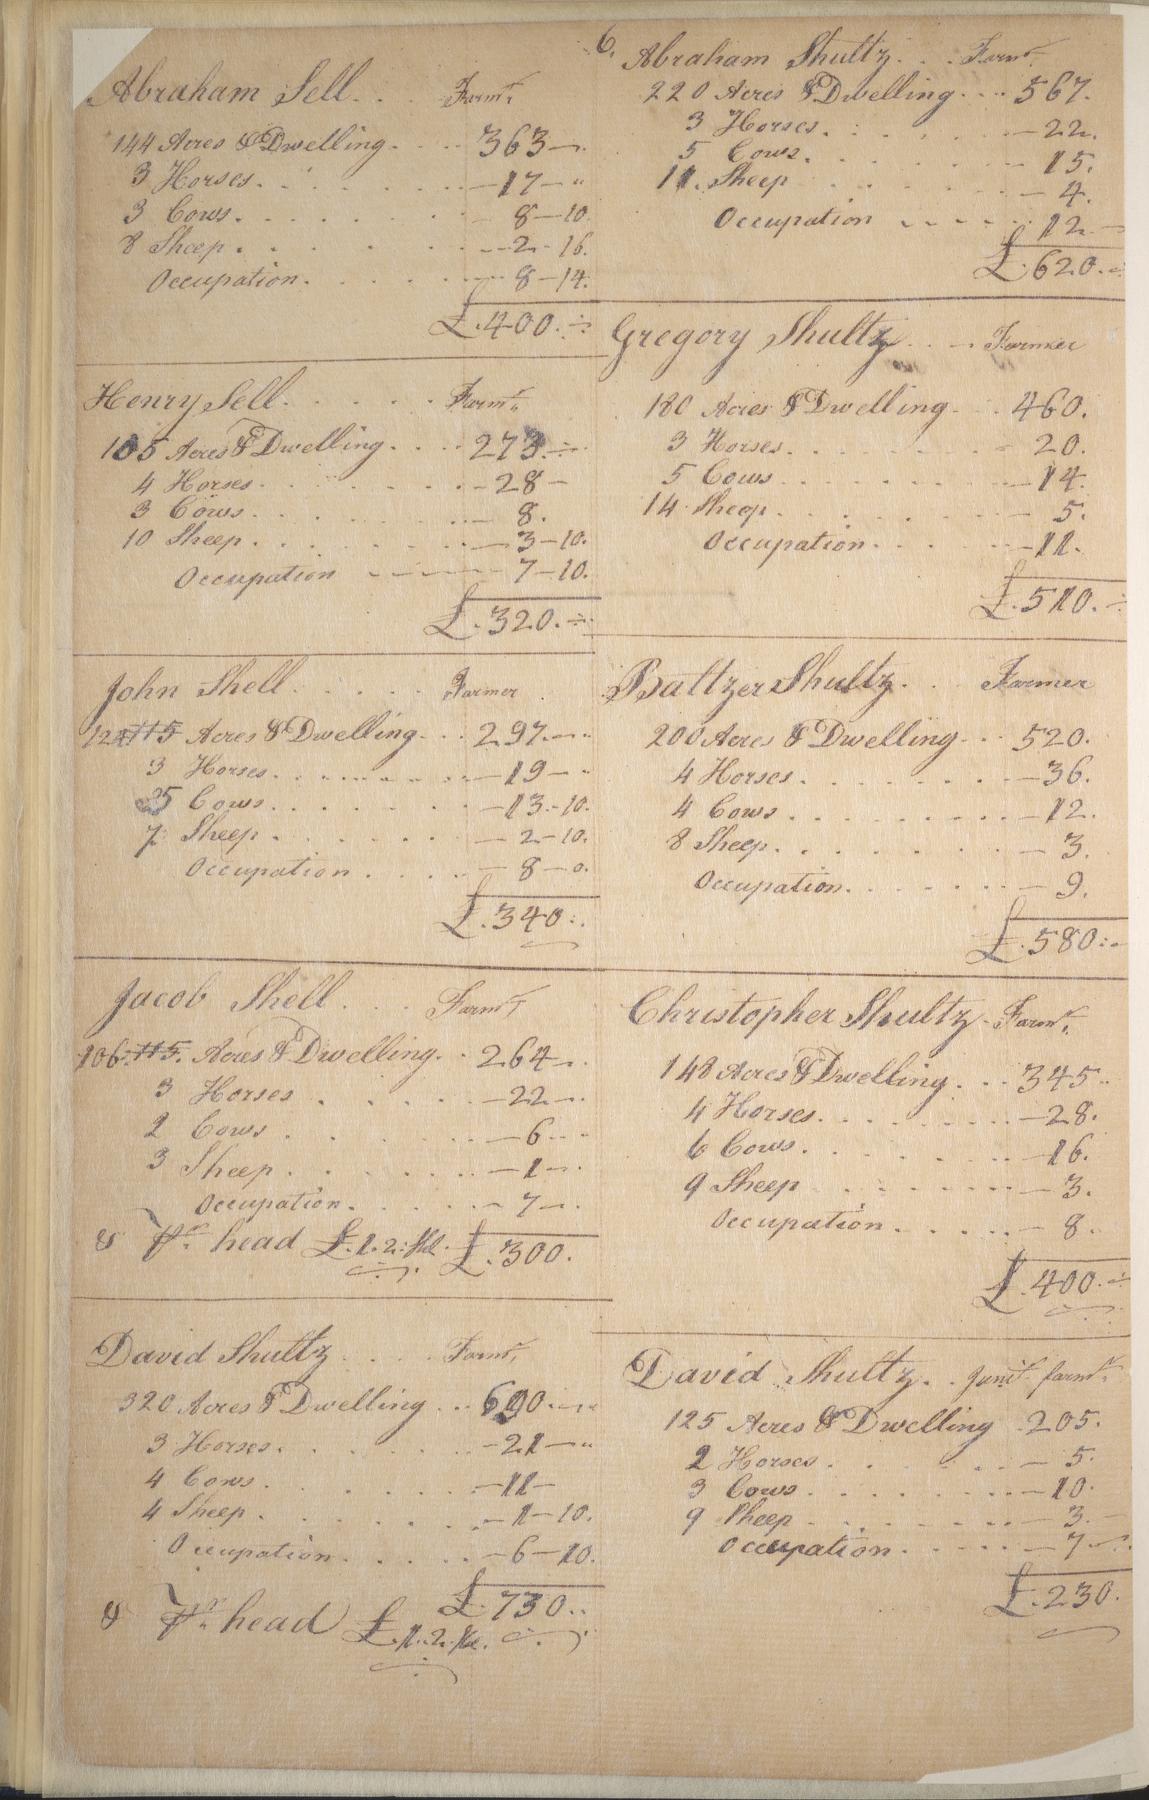 Abraham Sell . . . Farmr.
144 Acres & Dwelling . . . 363 —
3 Horses . . . — 17 — "
3 Cows . . . 8 — 10.
8 Sheep . . . — 2 - 16.
Occupation . . . — 8 — 14.
£. 400. ÷
Henry Sell . . . . . Farmr.
105 Acres & Dwelling . . . 273. ÷
4 Horses . . . — 28 —
3 Cows . . . — 8.
10 Sheep . . . — 3 — 10.
Occupation — — — 7 — 10.
£. 320. ÷
John Shell . . . . . Farmer
124 115 Acres & Dwelling . . 297. —
3 Horses . . . — 19 — "
5 Cows . . . — 13. - 10.
7 Sheep . . . — 2 — 10.
Occupation . . . — 8 — 0.
£. 340 :.
Jacob Shell . . . Farmr
106. 115. Acres & Dwelling . . 264 —
3 Horses . . . — 22 —
2 Cows . . . — 6 —
3 Sheep . . . — 1 —
Occupation . . . — 7 —
& Pr. head £. 1. 2. £. 300.
David Shultz . . . Farmr.
320 Acres & Dwelling . . . 690. —
3 Horses . . . — 21 — "
4 Cows . . . — 11 —
4 Sheep . . . — 1 — 10.
Occupation . . . — 6 — 10.
£. 730. .
& Pr. head £. 1. 2.
6.
Abraham Shultz . . . Farmr.
220 Acres & Dwelling . . . 567.
3 Horses . . . — 22.
5 Cows . . . — 15.
11. Sheep . . . — 4.
Occupation . . . 12. —
£. 620. ÷
Gregory Shultz . . — Farmer
180 Acres & Dwelling . . . 460.
3 Horses . . . — 20.
5 Cows . . . — 14.
14 Sheep . . . — 5.
Occupation . . . — 11.
£. 510. ÷
Baltzer Shultz . . . Farmer
200 Acres & Dwelling . . . 520.
4 Horses . . . — 36.
4 Cows . . . — 12.
8 Sheep . . . — 3.
Occupation . . . — 9.
£. 580 :-
Christopher Shultz . Farmr.
148 Acres & Dwelling . . . 345 . .
4 Horses . . . — 28.
6 Cows . . . — 16.
9 Sheep . . . — 3.
Occupation . . . — 8.
£. 400. ÷
David Shultz . . Junr. farmr.
125 Acres & Dwelling . 205.
2 Horses . . . — 5.
3 Cows . . . — 10.
9 Sheep . . . — 3. —
Occupation . . . — 7 —
£. 230.